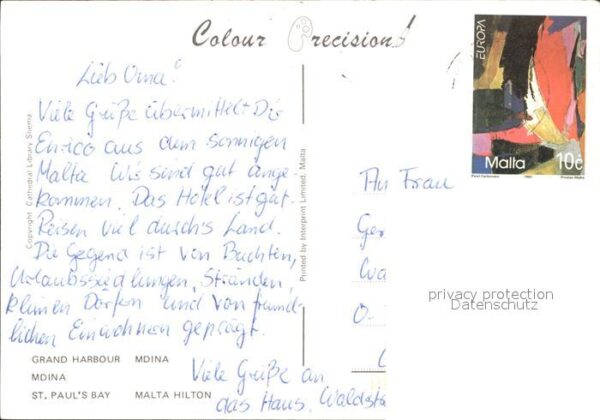 Colour Precision
Lieb Oma!
Viele Grüße übermittelt Dir
Enrico aus dem sonnigen
Malta Wir sind gut ange-
kommen. Das Hotel ist gut.
Reisen viel durch's Land.
Die Gegend ist von Buchten,
Urlaubssiedlungen, Stränden,
kleinen Dörfern und von freund-
lichen Einwohnern geprägt.
Viele Grüße an
das Haus, Waldstr
GRAND HARBOUR MDINA
MDINA
ST. PAUL'S BAY MALTA HILTON
Copyright Cathedral Library Sliema
Printed by Interprint Limited, Malta
EUROPA
Malta 10c
An Frau
Ger
Wa
O-
privacy protection
Datenschutz